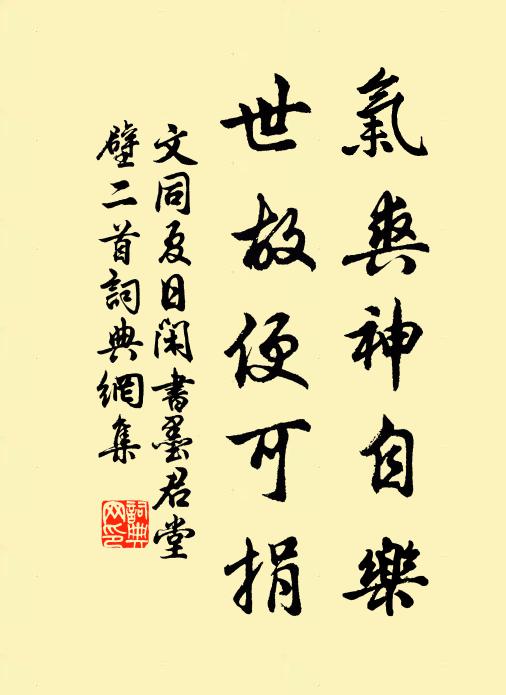 氣爽神自樂
世故便可捐
文同夏日閑書墨君堂
壁二首詞典網集
詞典
网印